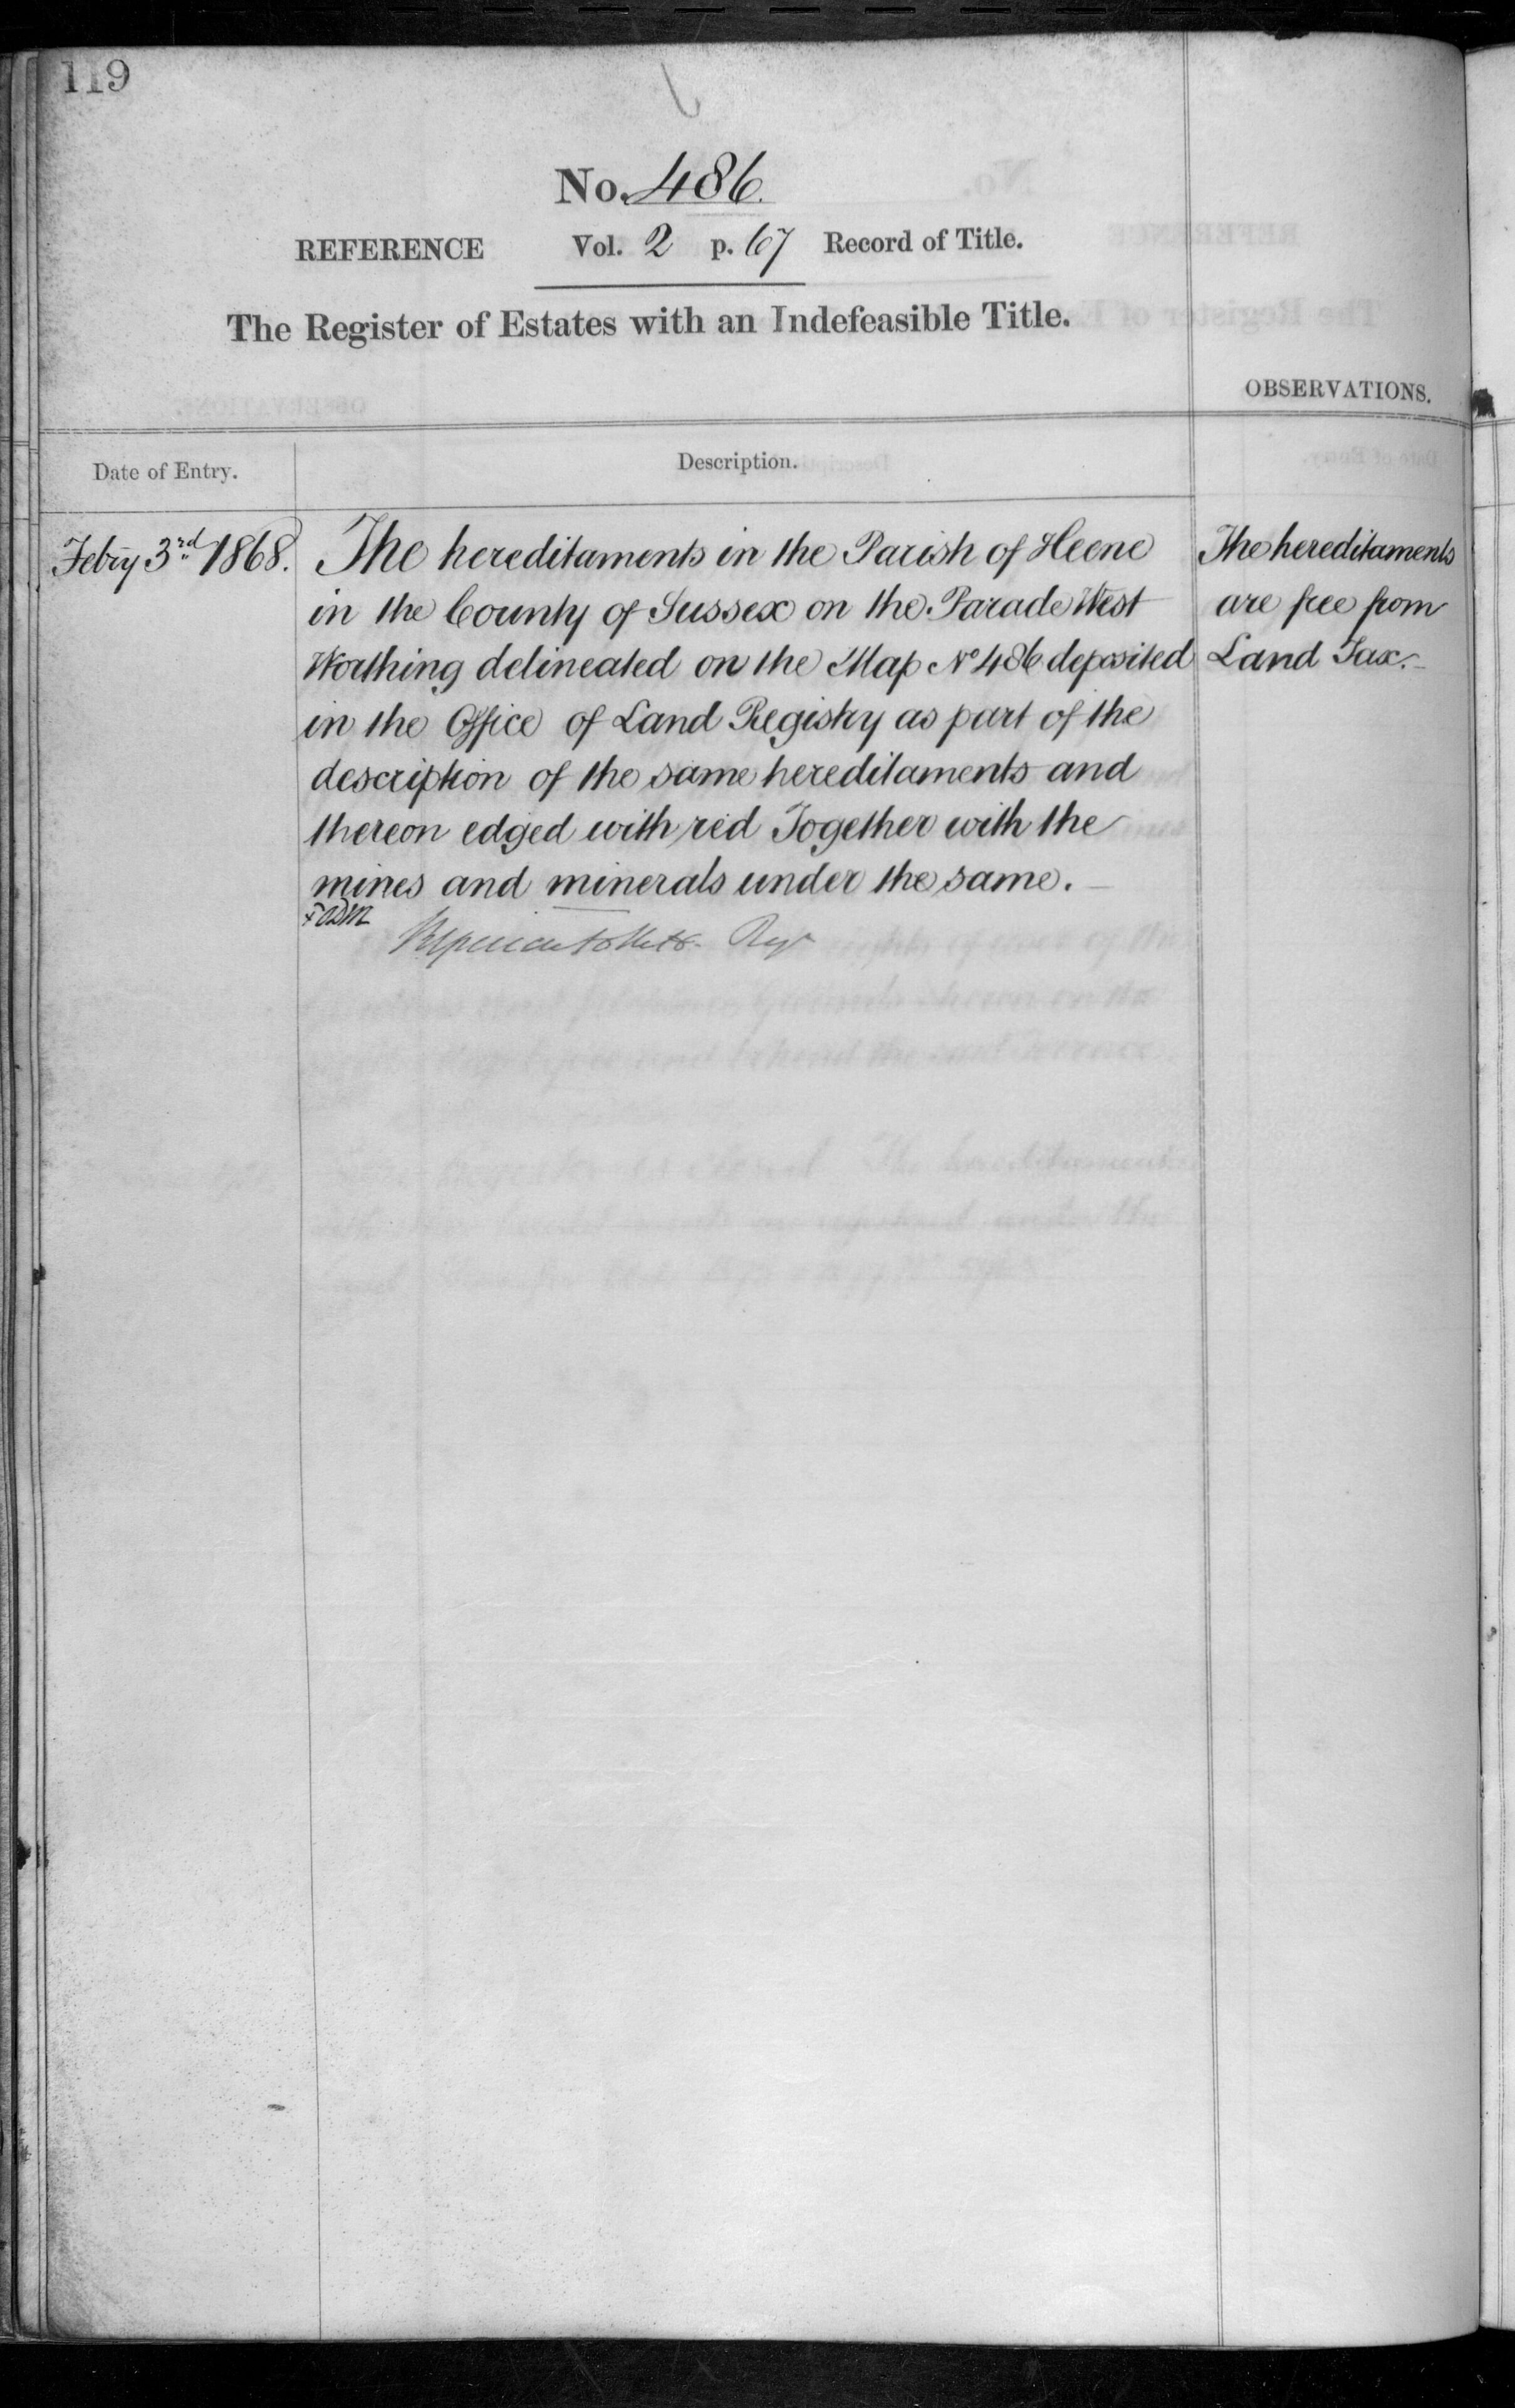 119
No. 486.
REFERENCE Vol. 2 p. 67 Record of Title.
The Register of Estates with an Indefeasible Title.
OBSERVATIONS.
Date of Entry.
Description.
Febry 3rd 1868.
The hereditaments in the Parish of Heene
in the County of Sussex on the Parade West
Worthing delineated on the Map No 486 deposited
in the Office of Land Registry as part of the
description of the same hereditaments and
thereon edged with red Together with the
mines and minerals under the same.
The hereditaments
are free from
Land Tax.